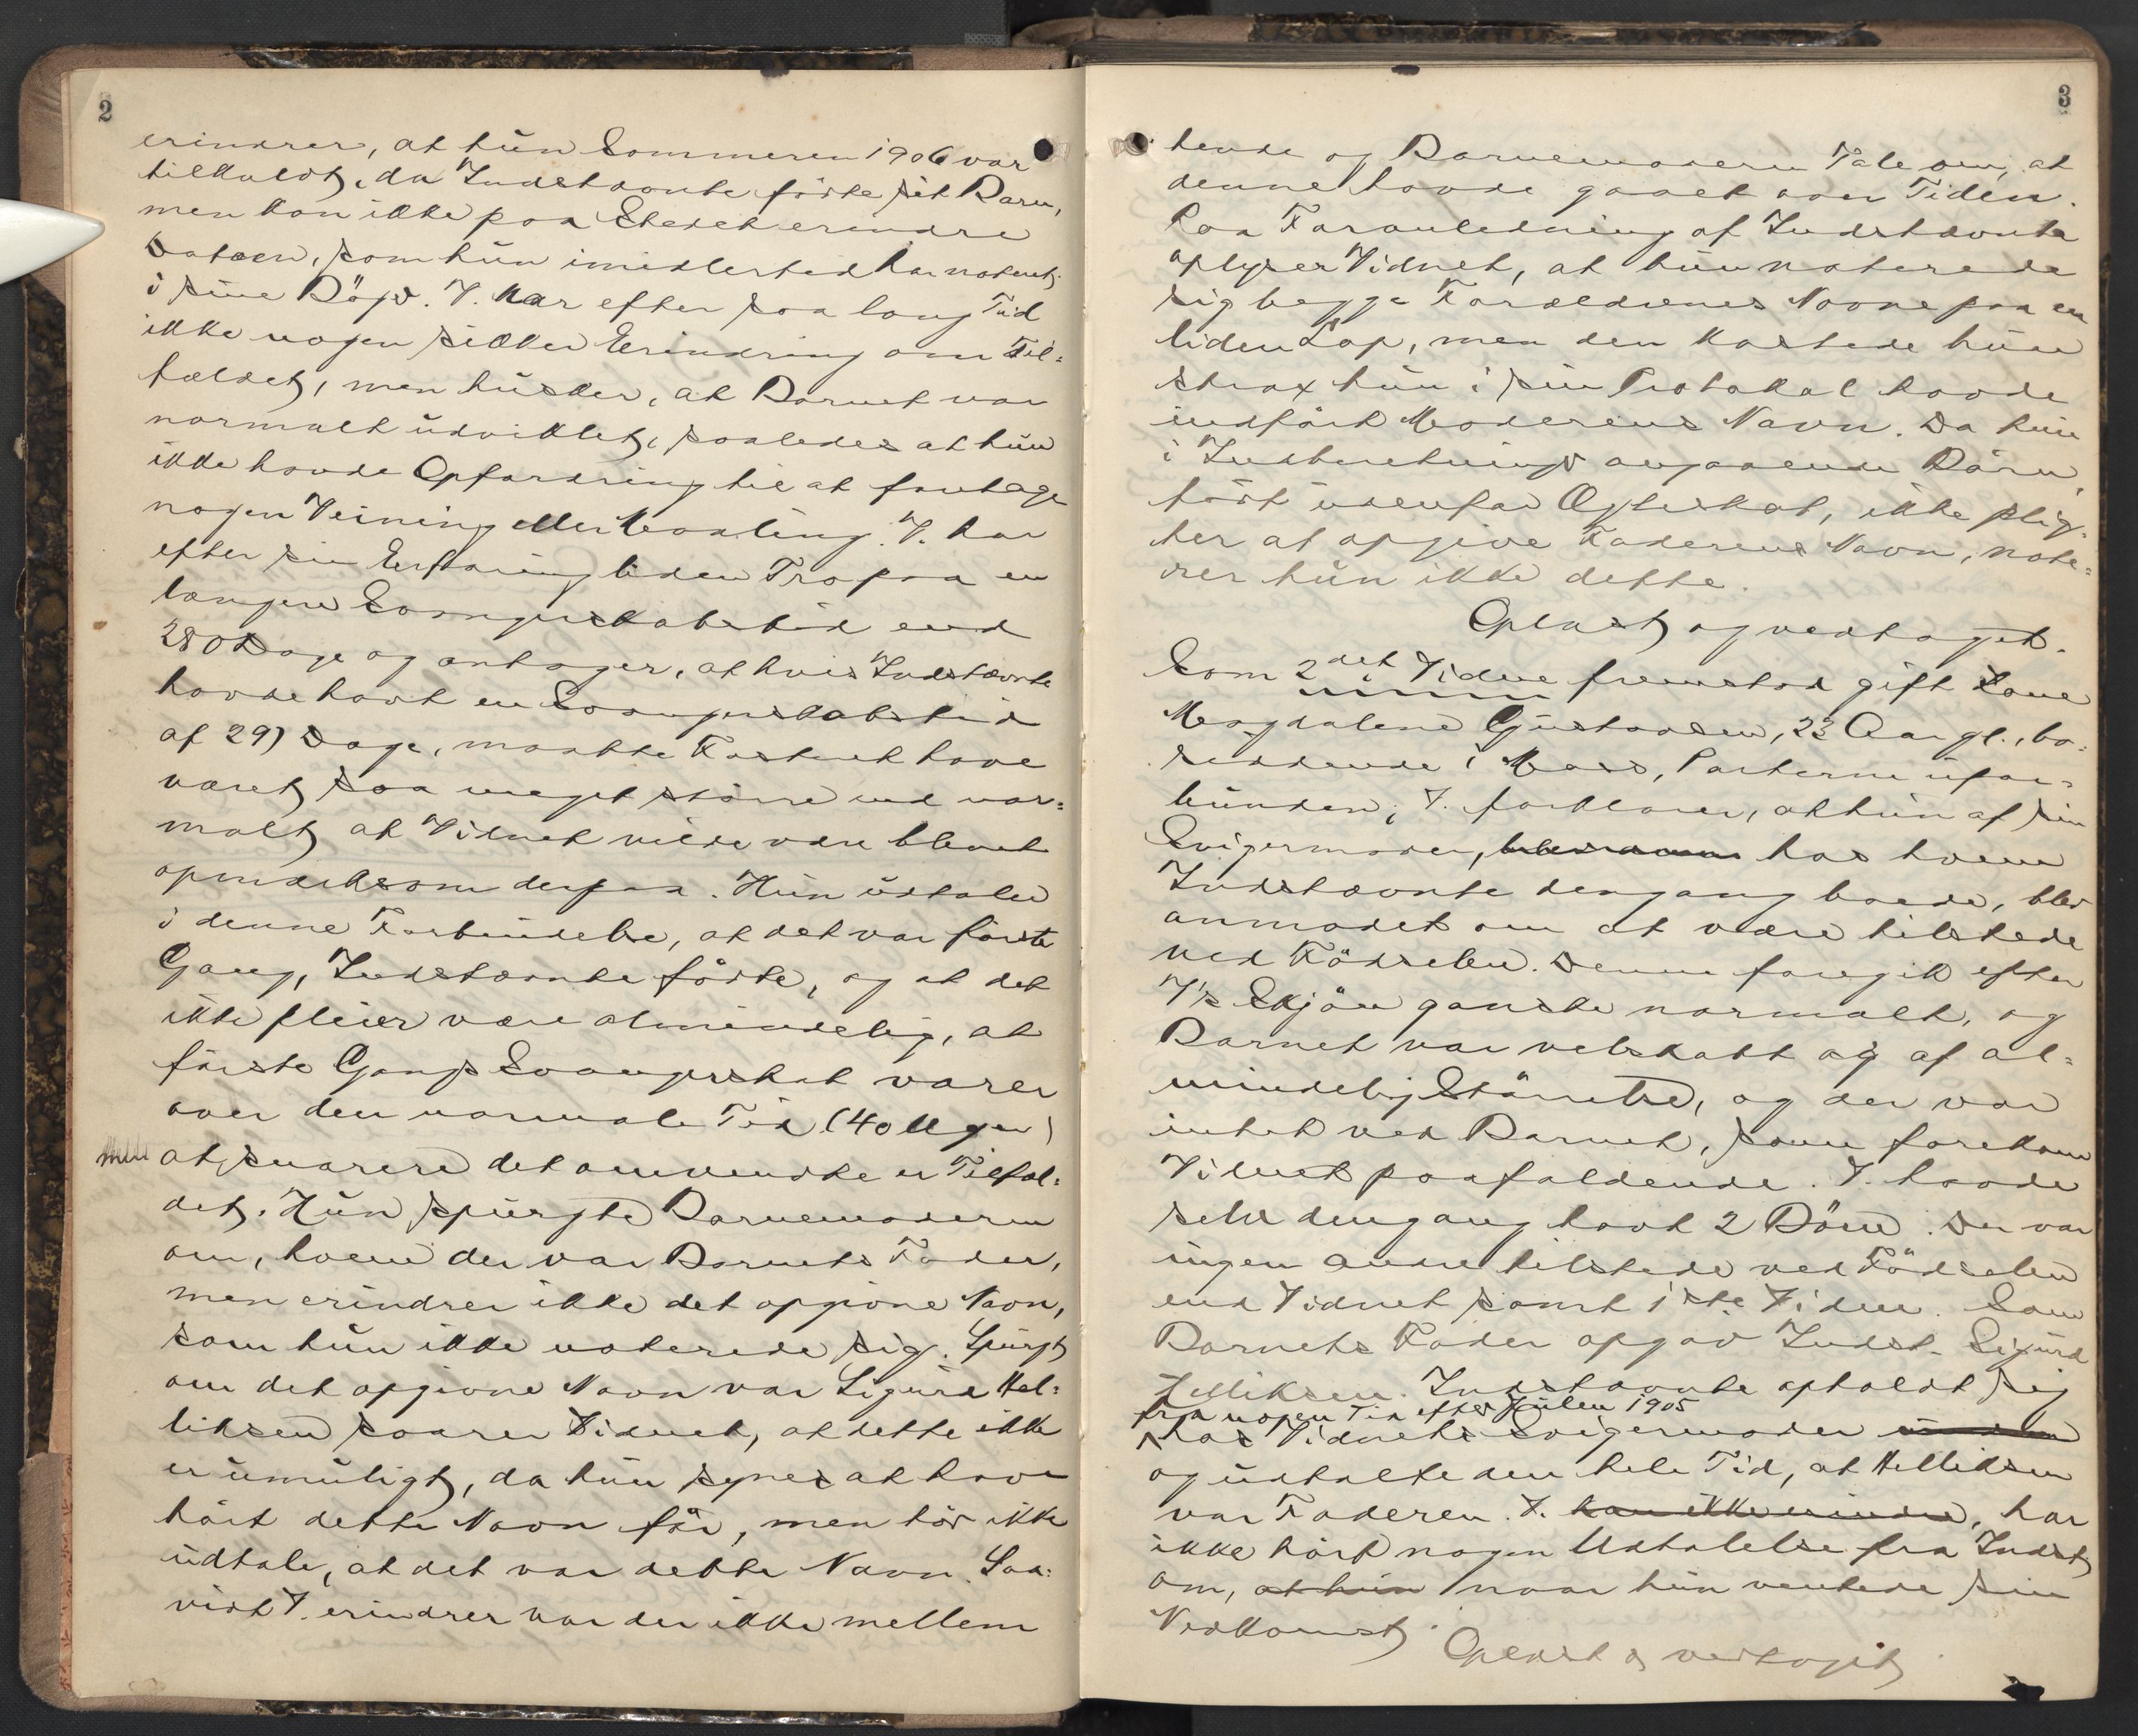 2
erindrer, at hun Sommeren 1906 var
tilkaldt, da Indstævnte fødte sit Barn,
men kan ikke paa Stedet erindre
Datoen, som hun imidlertid har noteret
i sine Bøger. V. har efter saa lang Tid
ikke nogen sikker Erindring om Til=
fældet, men husker, at Barnet var
normalt udviklet, saaledes at hun
ikke havde Opfordring til at foretage
nogen Veining eller Maaling. V. har
efter sin Erfaring liden Tro paa en
længere Svangerskabstid end
280 Dage og antager, at hvis Indstævnte
havde havt en Svangerskabstid
af 297 Dage, maatte Fosteret have
været saa meget større end nor=
malt, at Vidnet vilde være blevet
opmærksom derpaa. Hun udtaler
i denne Forbindelse, at det var første
Gang, Indstævnte fødte, og at det
ikke pleier være almindelig, at
første Gangs Svangerskab varer
over den normale Tid (40 Uger)
at snarere det omvendte er Tilfæl=
det. Hun spurgte Barnemoderen
om, hvem der var Barnets Fader,
men erindrer ikke det opgivne Navn,
som hun ikke noterede sig. Spurgt
om det opgivne Navn var Sigurd Hel=
liksen svarer Vidnet, at dette ikke
er umuligt, da hun synes at have
hørt dette Navn før, men tør ikke
udtale, at det var dette Navn. Saa=
vidt V. erindrer var der ikke mellem
3
hende og Barnemoderen Tale om, at
denne havde gaaet over Tiden.
Paa Foranledning af Indstævnte
oplyser Vidnet, at hun noterede
sig begge Forældrenes Navne paa en
liden Lap, men den kastede hun
strax hun i sin Protokol havde
indført Moderens Navn. Da hun
i Indberetninger angaaende Børn,
født udenfor Ægteskab, ikke plig=
ter at opgive Faderens Navn, note=
rer hun ikke dette.
Oplæst og vedtaget.
Som 2det Vidne fremstod gift Kone
Magdalene Gustavsen, 23 Aar gl., bo=
siddende i Moss, Parterne ufor=
bunden; V. forklarer, at hun af sin
Svigermoder, hos hvem
Indstævnte dengang boede, blev
anmodet om at være tilstede
ved Fødselen. Denne foregik efter
V's Skjøn ganske normalt, og
Barnet var velskabt og af al=
mindelig Størrelse, og der var
intet ved Barnet, som forekom
Vidnet paafaldende. V. havde
selv dengang havt 2 Børn. Der var
ingen andre tilstede ved Fødselen
end Vidnet samt 1ste Vidne. Som
Barnets Fader opgav Indst. Sigurd
Helliksen. Indstævnte opholdt sig
fra nogen Tid efter Julen 1905
hos Vidnets Svigermoder
og udtalte den hele Tid, at Helliksen
var Faderen. V. kan ikke erindre, har
ikke hørt nogen Udtalelse fra Indst
om, at hun naar hun ventede sin
Nedkomst.
Oplæst og vedtaget